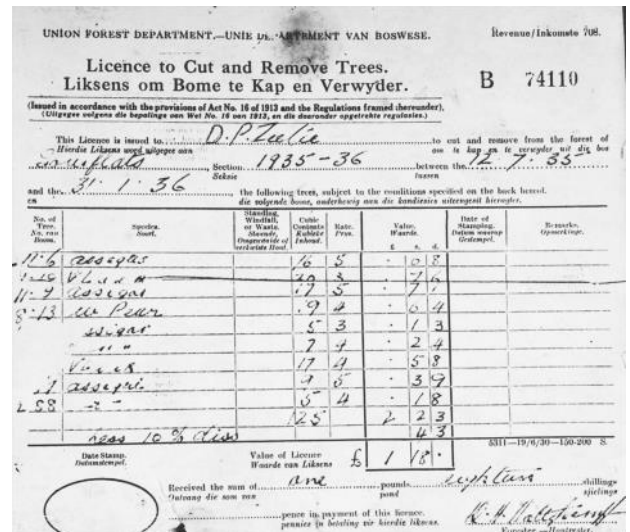 UNION FOREST DEPARTMENT.—UNIE DEPARTEMENT VAN BOSWESE.
Revenue/Inkomste 708.
Licence to Cut and Remove Trees.
Liksens om Bome te Kap en Verwyder.
B 74110
(Issued in accordance with the provisions of Act No. 16 of 1913 and the Regulations framed thereunder),
(Uitgegee volgens die bepalinge van Wet No. 16 van 1913, en die daaronder opgetrekte regulasies.)
This Licence is issued to D.P. to cut and remove from the forest of
Hierdie Liksens word uitgegee aan om te kap en te verwyder uit die bos
Section 1935-36 between the 12.7.35
Seksie tussen
and the 31.1.36 the following trees, subject to the conditions specified on the back hereof.
en die volgende bome, onderhewig aan die kondiesies uiteengesit hieragter.
No. of Tree. No. van Boom.
Species. Soort.
Standing, Windfall, or Waste. Staande, Omgewaaide of verkwiste Hout.
Cubic Contents Kubieke Inhoud.
Rate. Prys.
Value. Waarde.
£ s. d.
Date of Stamping. Datum waarop Gestempel.
Remarks. Opmerkinge.
11.6 assegai 16 5 . 8
11.9 assegai 17 5 . 7 1
8.13 Pear 9 4
5 3 . 1 3
" " 7 4 . 2 4
17 4 . 5 8
assegai 9 5 . 3 9
5 4 . 1 8
125 2 2 3
Less 10% disc 4 3
5311—19/6/30—150-200 S.
Date Stamp. Value of Licence £ 1 18 .
Datumstempel. Waarde van Liksens
Received the sum of one pounds eighteen shillings
Ontvang die som van pond sjielings
pence in payment of this licence.
pennies in betaling vir hierdie liksens.
Forester —